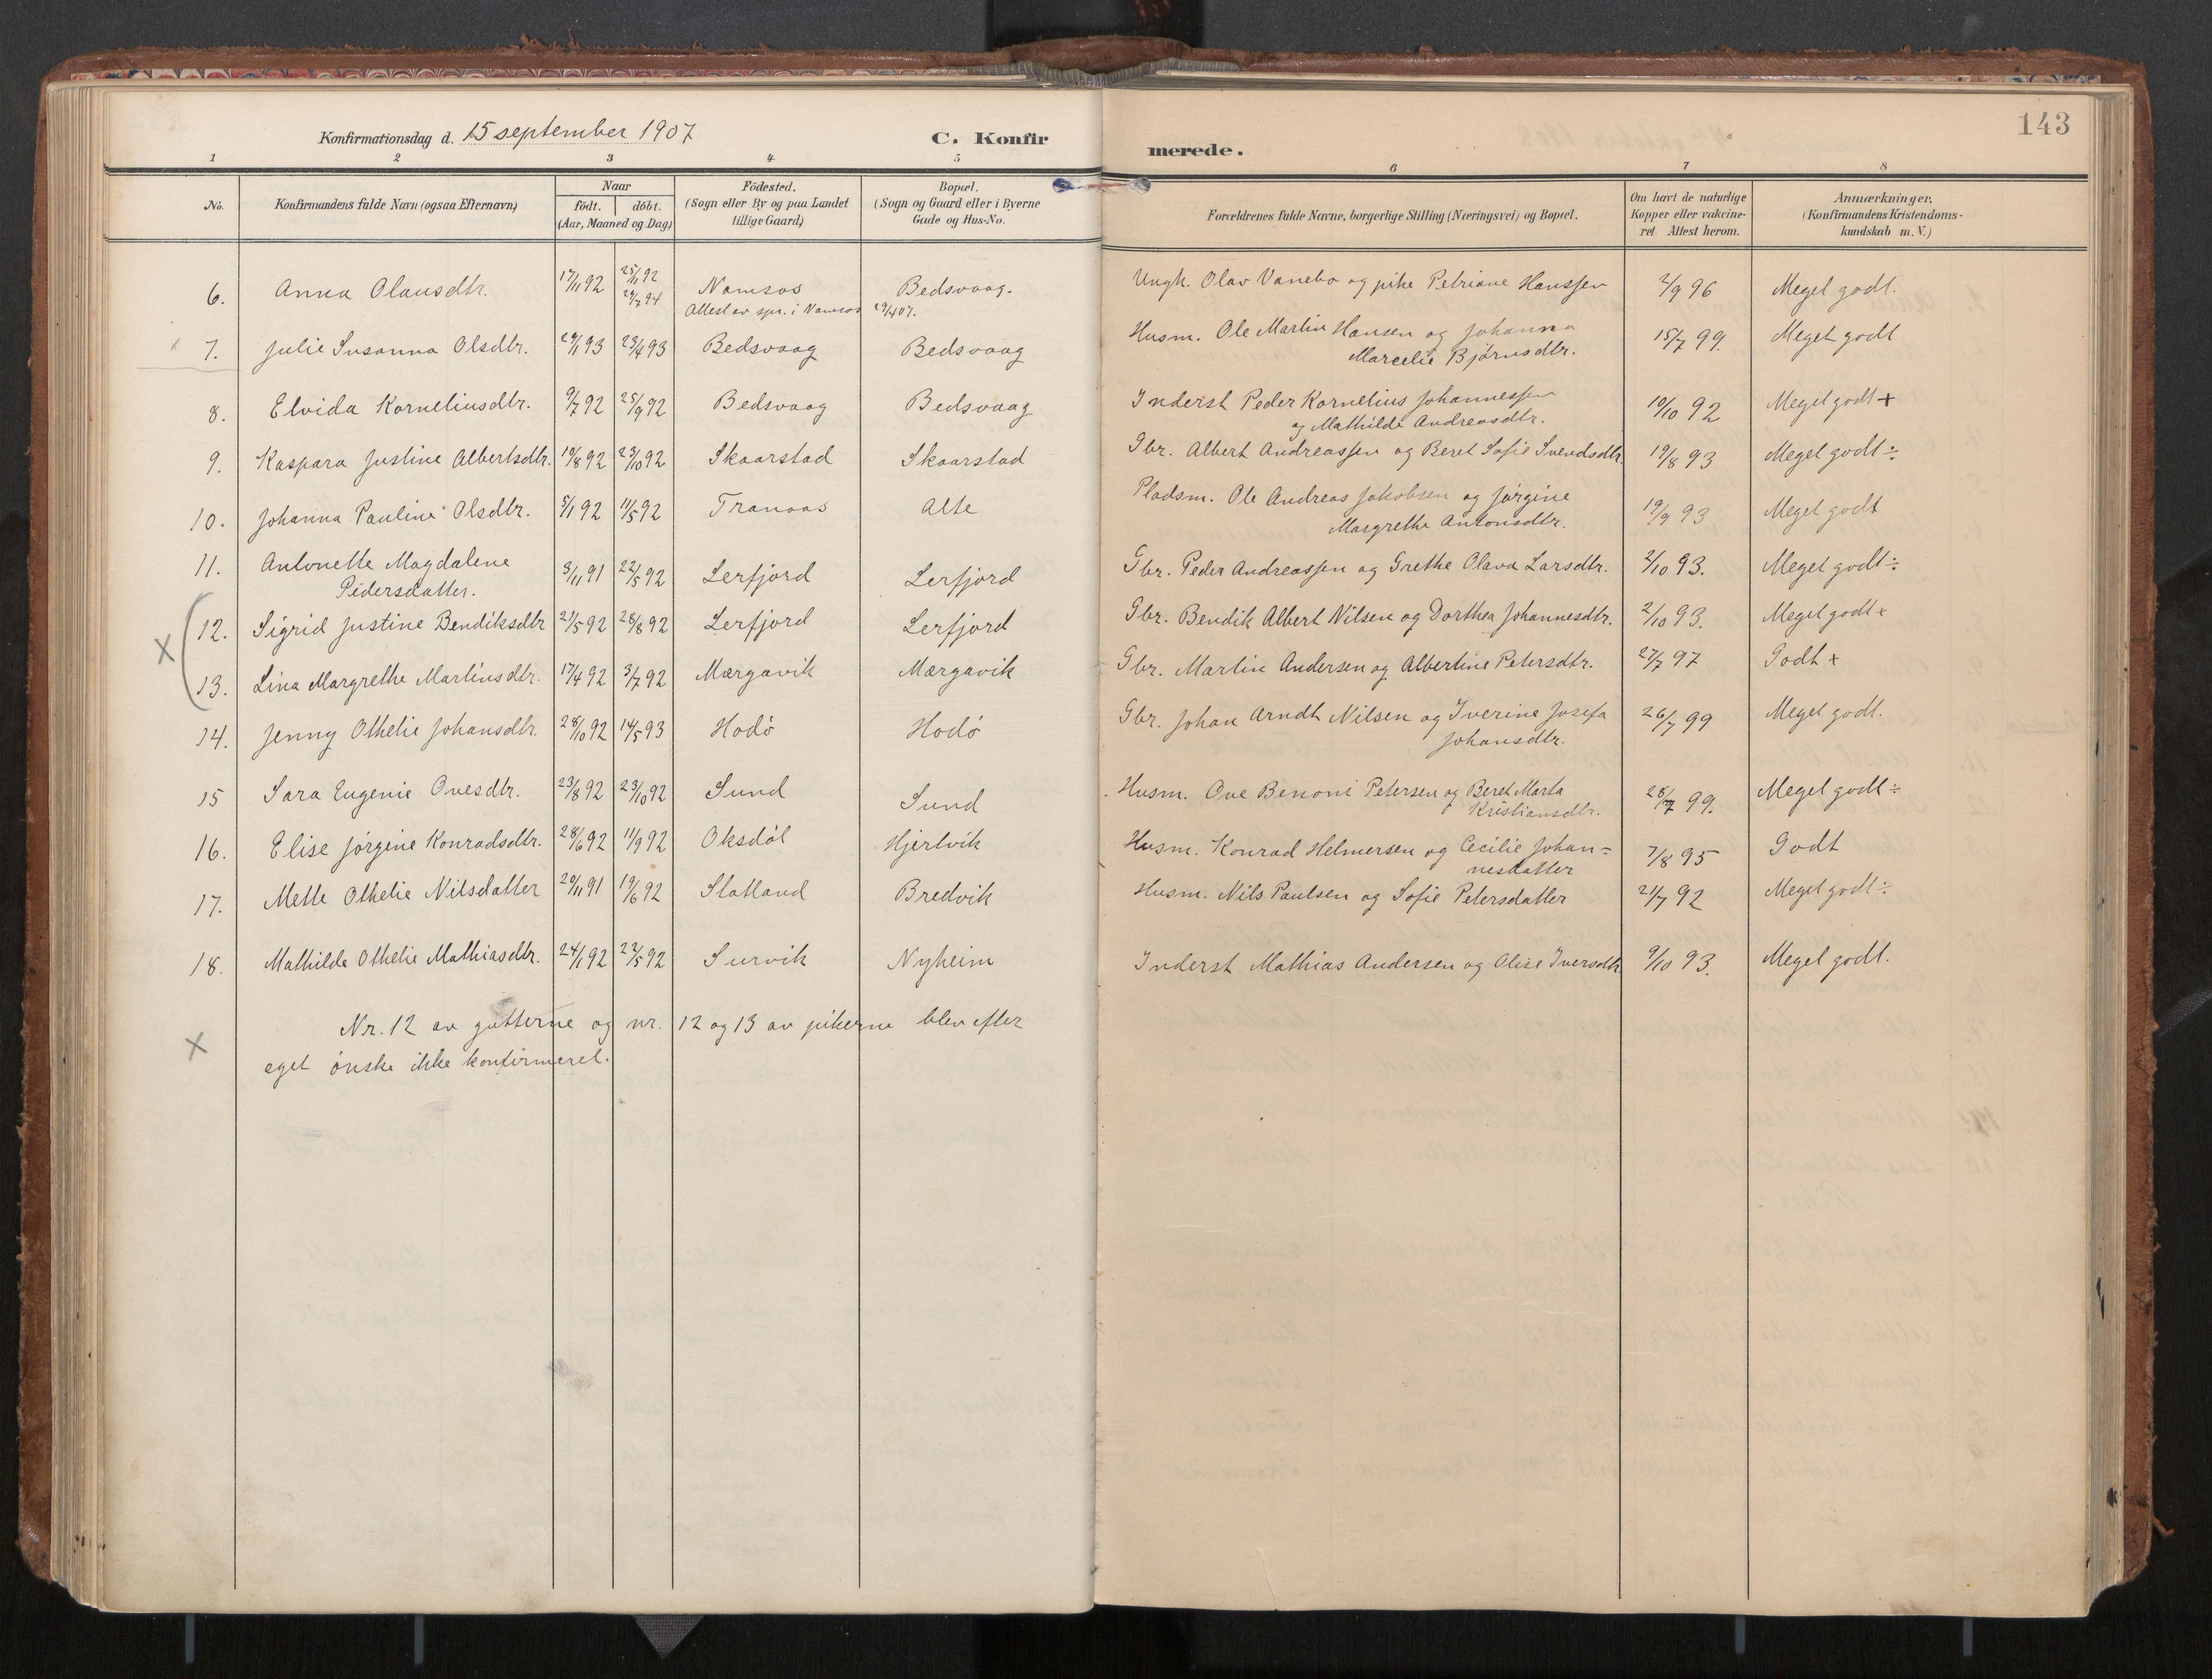 143
Konfirmationsdag d. 15 september 1907 C. Konfirmerede.
1 2 3 4 5 6 7 8
No. Konfirmandens fulde Navn (ogsaa Efternavn) Naar födt. döbt. (Aar, Maaned og Dag) Födested. (Sogn eller By og paa Landet tillige Gaard) Bopæl. (Sogn og Gaard eller i Byerne Gade og Hus-No. Forældrenes fulde Navne, borgerlige Stilling (Næringsvei) og Bopæl. Om havt de naturlige Kopper eller vakcineret. Attest herom. Anmærkninger. (Konfirmandens Kristendomskundskab m. V.)
6. Anna Olausdtr. 17/11 92 25/11 92 29/7 94 Namsos Bedsvaag. Ungk. Olav Vanebo og pike Petriane Hanssen 2/9 96 Meget godt.
Attest av spr. i Namsos 29/4 07.
x 7. Julie Susanna Olsdtr. 29/1 93 23/4 93 Bedsvaag Bedsvaag Husm. Ole Martin Hansen og Johanna 15/7 99. Meget godt
Marcelie Bjørnsdtr.
8. Elvida Korneliusdtr. 9/7 92 25/9 92 Bedsvaag Bedsvaag Inderst Peder Kornelius Johannessen 10/10 92 Meget godt +
og Mathilde Andreasdtr.
9. Kaspara Justine Albertsdtr. 19/8 92 23/10 92 Skaarstad Skaarstad Gbr. Albert Andreassen og Beret Sofie Svendsdtr. 19/8 93 Meget godt ÷
10. Johanna Pauline Olsdtr. 5/1 92 11/5 92 Tranaas Alte Pladsm. Ole Andreas Jakobsen og Jørgine 19/9 93 Meget godt
Margrethe Antonsdtr.
11. Antonette Magdalene
Pedersdatter. 3/11 91 22/5 92 Lerfjord Lerfjord Gbr. Peder Andreassen og Grethe Olava Larsdtr. 2/10 93. Meget godt ÷
x 12. Sigrid Justine Bendiksdtr 21/5 92 28/8 92 Lerfjord Lerfjord Gbr. Bendik Albert Nilsen og Dorthea Johannesdtr. 2/10 93. Meget godt +
13. Lina Margrethe Martinsdtr. 17/4 92 3/7 92 Mærgavik Mærgavik Gbr. Martin Andersen og Albertine Petersdtr. 27/7 97 Godt +
14. Jenny Othelie Johansdtr. 28/10 92 14/5 93 Hodø Hodø Gbr. Johan Arndt Nilsen og Iverine Josefa 26/7 99 Meget godt.
Johansdtr.
15 Sara Eugenie Ovesdtr. 23/8 92 23/10 92 Sund Sund Husm. Ove Benoni Petersen og Beret Marta 28/7 99. Meget godt ÷
Kristiansdtr.
16. Elise Jørgine Konradsdtr. 28/6 92 11/9 92 Oksdøl Hjertvik Husm. Konrad Helmersen og Cecilie Johan= 7/8 95 Godt
nesdatter
17. Mette Othelie Nilsdatter 20/11 91 19/6 92 Statland Bredvik Husm. Nils Paulsen og Sofie Petersdatter 21/7 92 Meget godt ÷
18. Mathilde Othelie Mathiasdtr. 24/1 92 22/5 92 Survik Nyheim Inderst Mathias Andersen og Olise Iversdtr. 9/10 93. Meget godt.
x Nr. 12 av gutterne og nr. 12 og 13 av pikerne blev efter
eget ønske ikke konfirmeret.